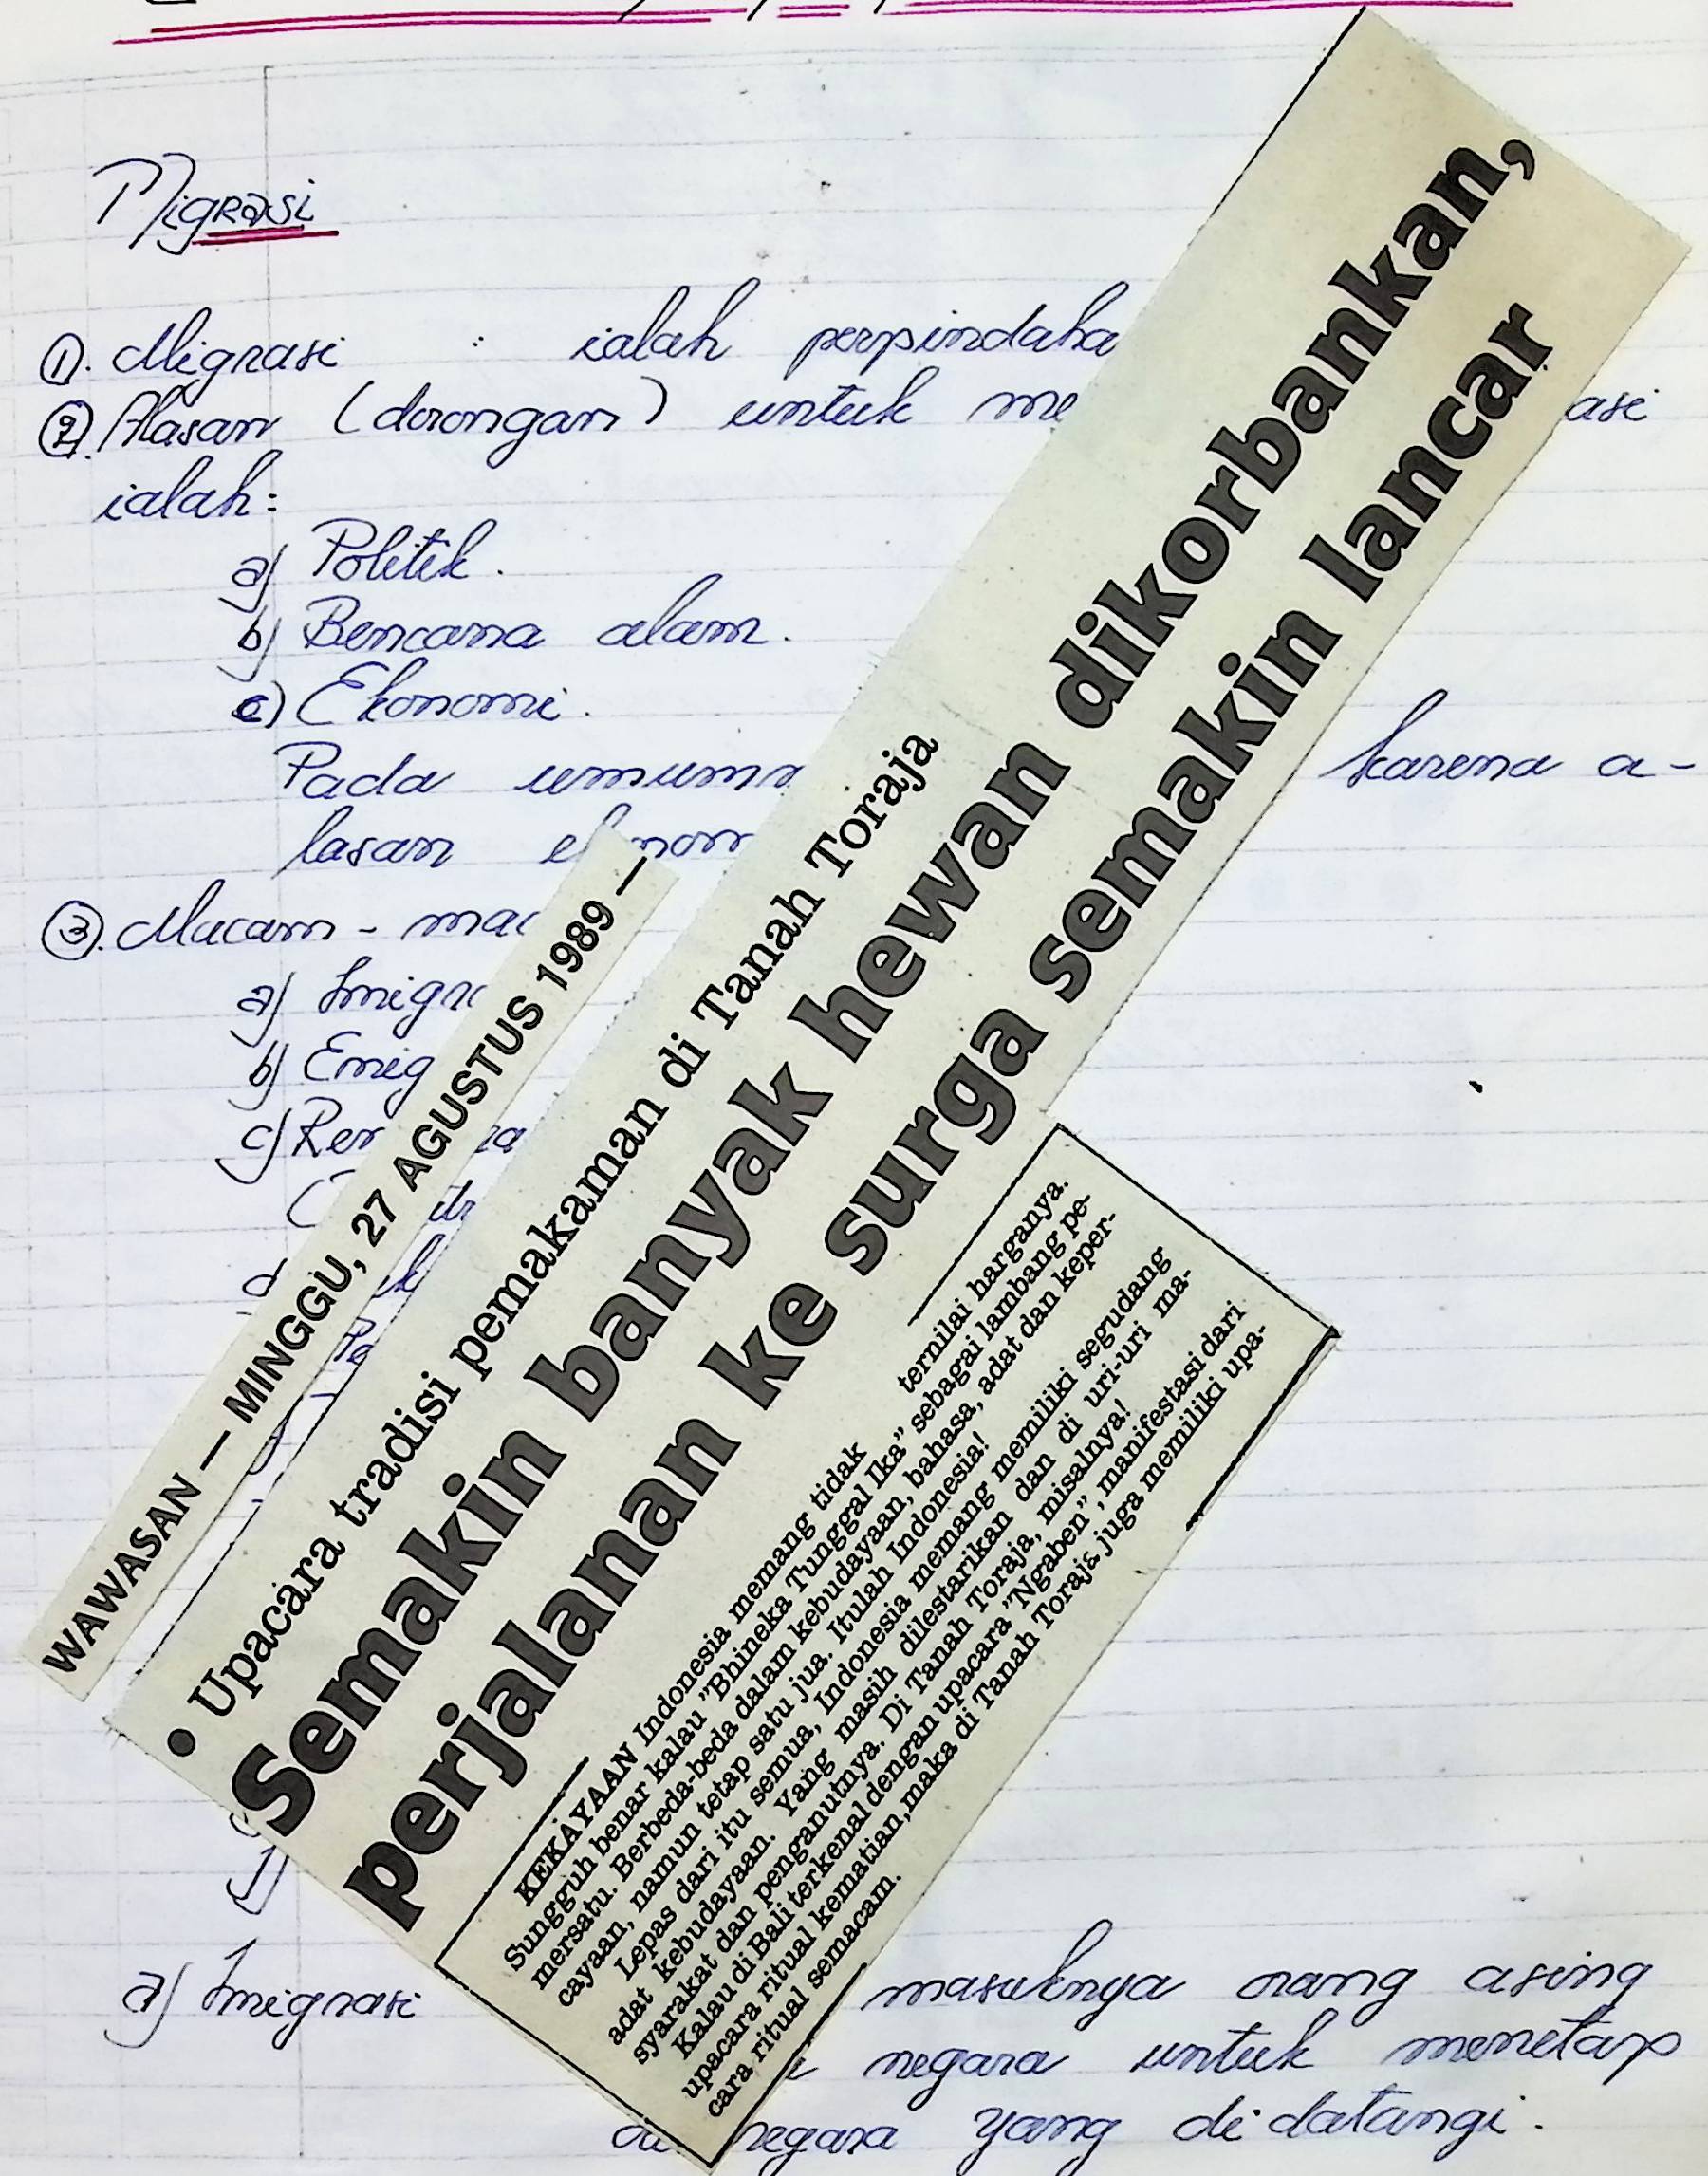 Migrasi
①. Migrasi : ialah perpindaha
②. Alasan (dorongan) untuk me asi
ialah:
a) Politik.
b) Bencana alam.
c) Ekonomi.
Pada umumn karena a-
lasan
③. Macam - mac
a) Imigra
b) Emig
c)
WAWASAN — MINGGU, 27 AGUSTUS 1989 —
• Upacara tradisi pemakaman di Tanah Toraja
Semakin banyak hewan dikorbankan,
perjalanan ke surga semakin lancar
KEKAYAAN Indonesia memang tidak ternilai harganya.
Sungguh benar kalau "Bhineka Tunggal Ika" sebagai lambang pe-
mersatu. Berbeda-beda dalam kebudayaan, bahasa, adat dan keper-
cayaan, namun tetap satu jua. Itulah Indonesia!
Lepas dari itu semua, Indonesia memang memiliki segudang
adat kebudayaan. Yang masih dilestarikan dan di uri-uri ma-
syarakat dan penganutnya. Di Tanah Toraja, misalnya!
Kalau di Bali terkenal dengan upacara "Ngaben", manifestasi dari
upacara ritual kematian, maka di Tanah Toraja juga memiliki upa-
cara ritual semacam.
a) Imigrasi masuknya orang asing
negara untuk menetap
negara yang di datangi.